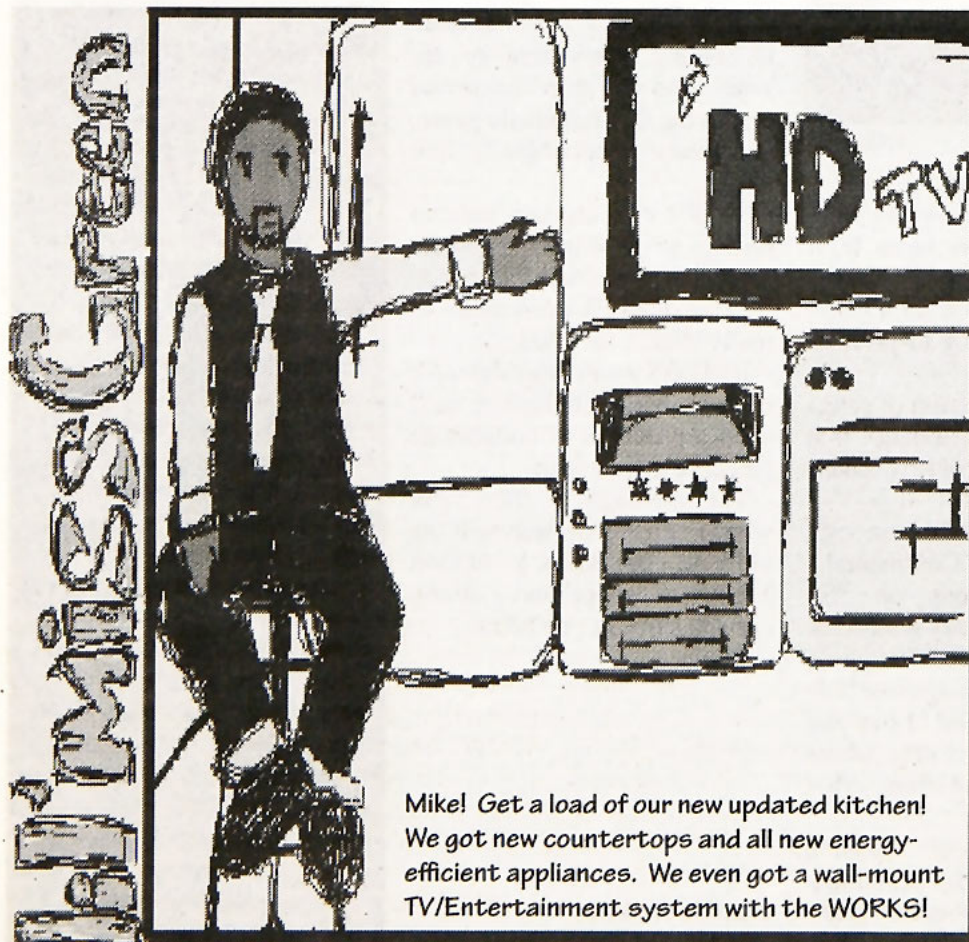 Lil'MiSS
HD TV
Mike! Get a load of our new updated kitchen!
We got new countertops and all new energy-
efficient appliances. We even got a wall-mount
TV/Entertainment system with the WORKS!